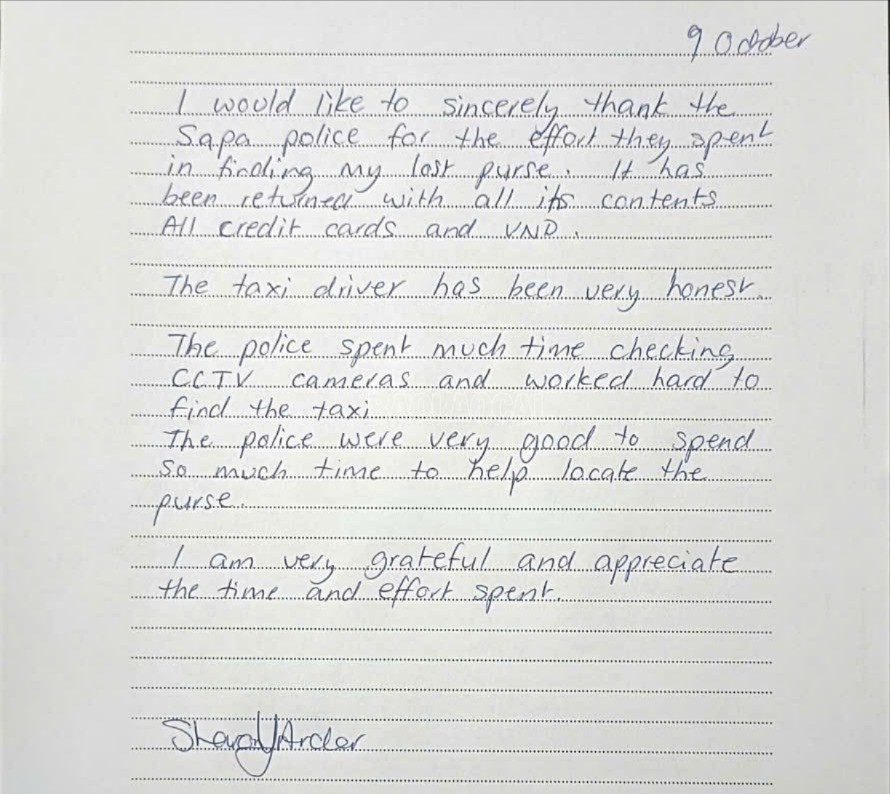 9 October
I would like to sincerely thank the
Sapa police for the effort they spent
in finding my lost purse. It has
been returned with all its contents
All credit cards and VND.
The taxi driver has been very honest.
The police spent much time checking
CCTV cameras and worked hard to
find the taxi
The police were very good to spend
so much time to help locate the
purse.
I am very grateful and appreciate
the time and effort spent.